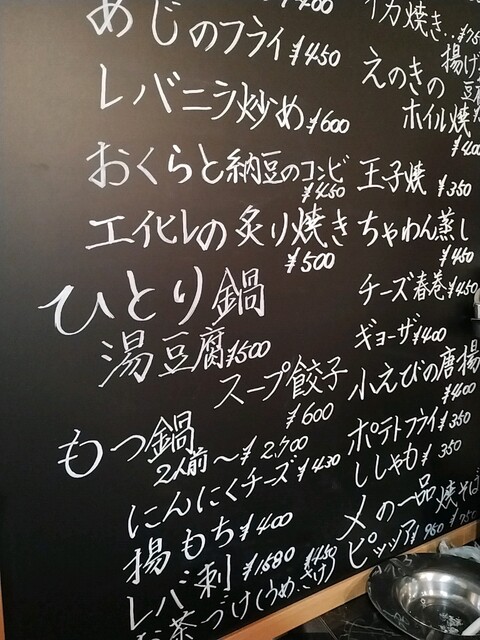 ¥400
めじのフライ ¥450
レバニラ炒め ¥600
おくらと納豆のコンビ
¥450
エイヒレの炙り焼き
¥500
ひとり鍋
湯豆腐 ¥500
スープ餃子
¥600
もつ鍋
2人前〜¥2,700
にんにくチーズ ¥430
揚もち ¥400
レバ刺 ¥1580
お茶づけ(うめ、さけ) ¥450
イカ焼き
えのきの
ホイル焼
¥400
王子焼 ¥350
ちゃわん蒸し
¥450
チーズ春巻 ¥450
ギョーザ ¥400
小えびの唐揚
¥400
ポテトフライ ¥350
ししゃも ¥350
〆の一品
焼そば
¥750
ピッツァ ¥950